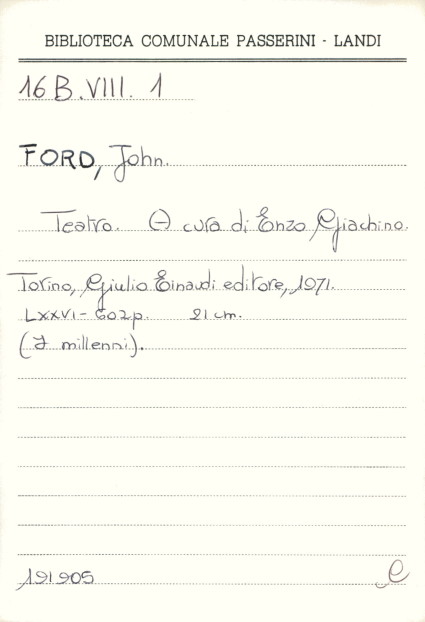 BIBLIOTECA COMUNALE PASSERINI - LANDI
16 B.VIII. 1
FORD, John.
Teatro. A cura di Enzo Giachino.
Torino, Giulio Einaudi editore, 1971.
LXXVI- 602 p. 21 cm.
(I millenni).
191905
e